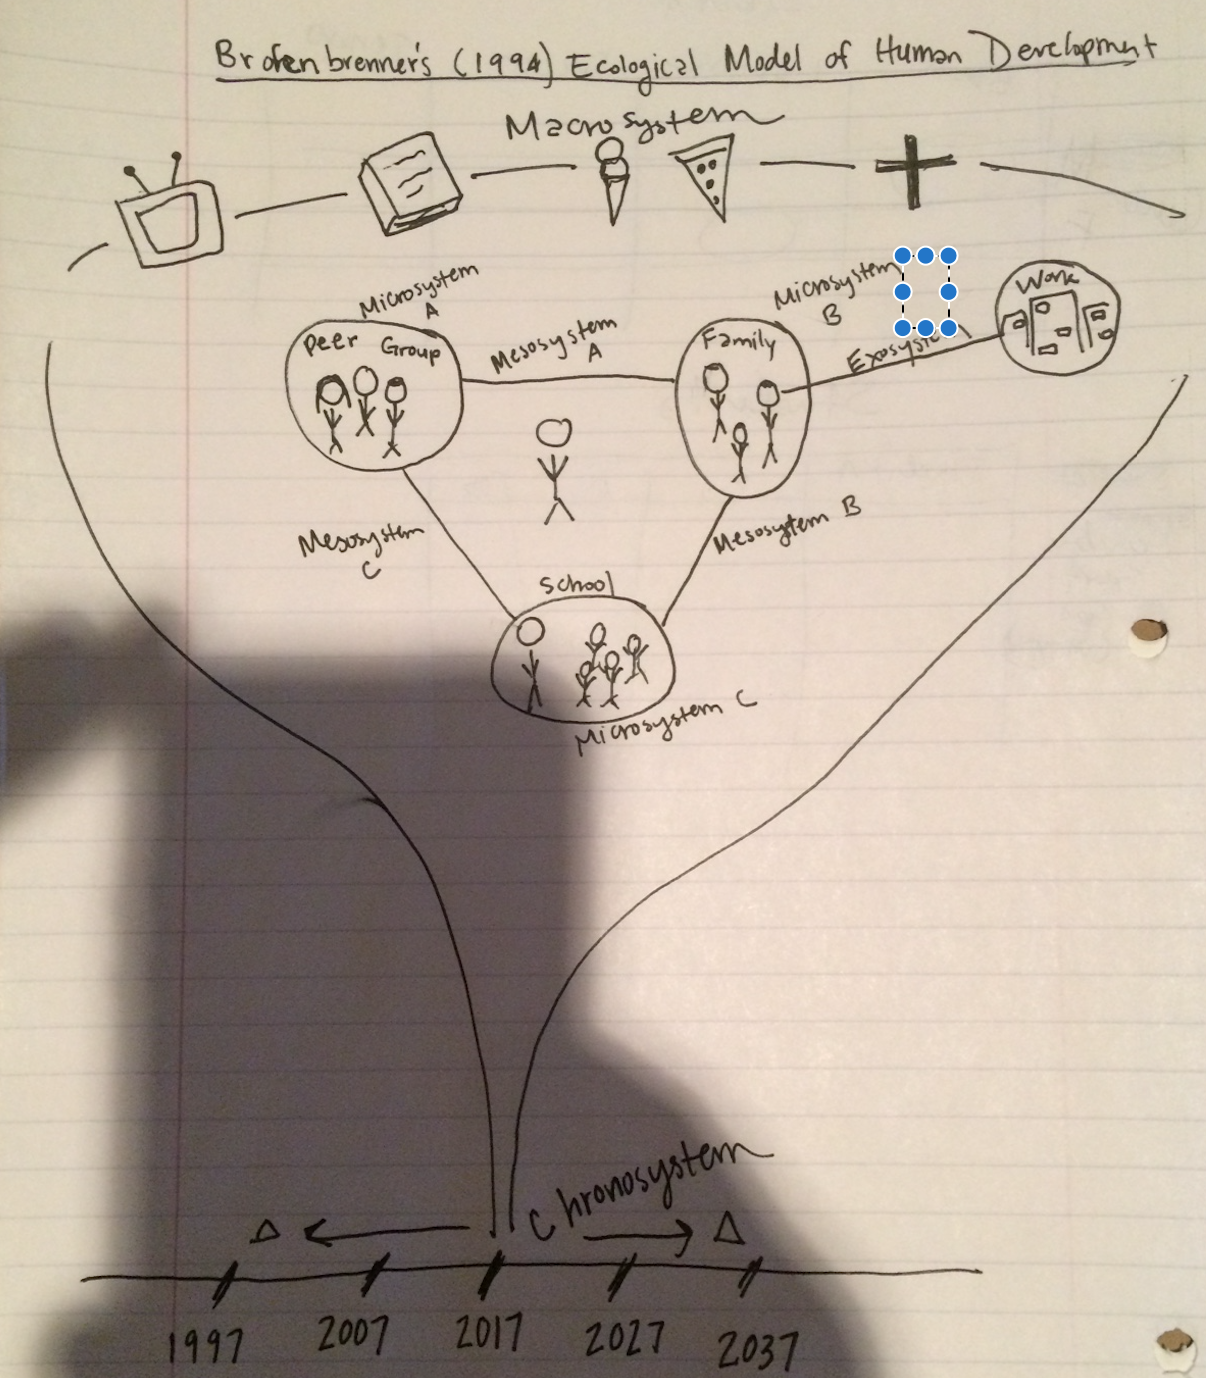 Brofenbrenner's (1994) Ecological Model of Human Development
Macrosystem
Microsystem
A
Peer Group
Mesosystem
A
Microsystem
B
Family
Work
Mesosystem
C
Mesosystem B
School
Microsystem C
Chronosystem
Δ Δ
1997 2007 2017 2027 2037